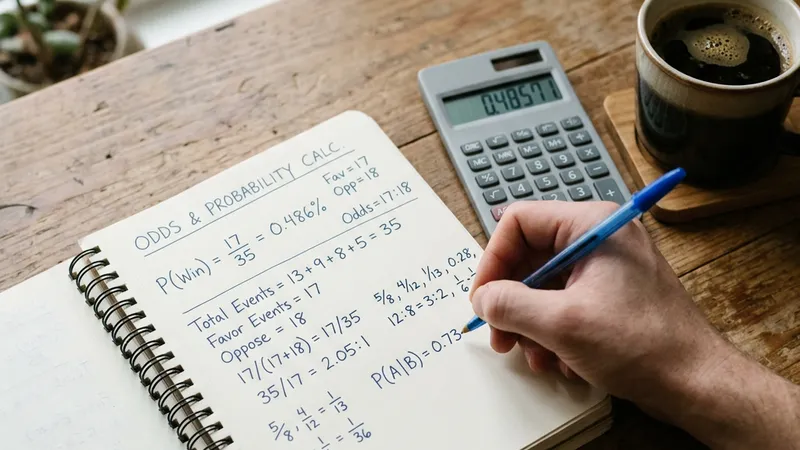 ODDS & PROBABILITY CALC.
Fav = 17
Opp = 18
P(Win) = 17/35 = 0.486%
Odds = 17:18
Total Events = 13+9+8+5 = 35
Favor Events = 17
Oppose = 18
17/(17+18) = 17/35
35/17 = 2.05:1
5/8, 4/12 = 1/13
= 1/36
5/8, 4/12, 1/13, 0.28,
12:8 = 3:2,
P(A|B) = 0.73
0.48571